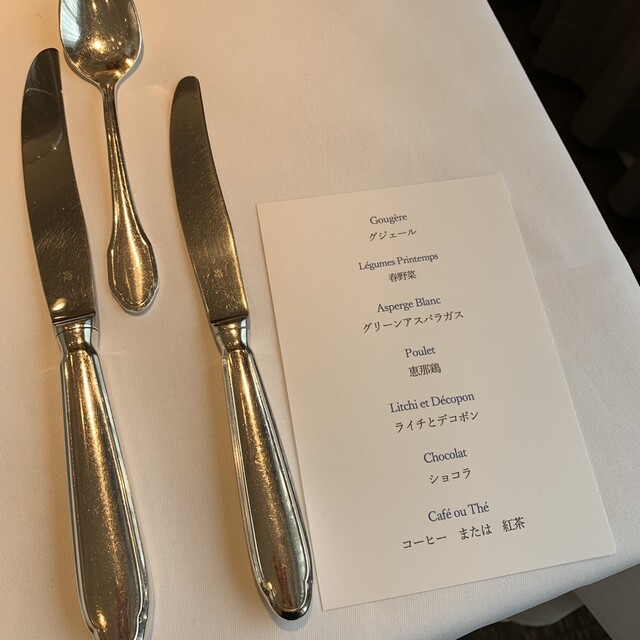 Gougère
グジェール
Légumes Printemps
春野菜
Asperge Blanc
グリーンアスパラガス
Poulet
恵那鶏
Litchi et Décopon
ライチとデコポン
Chocolat
ショコラ
Café ou Thé
コーヒー　または　紅茶